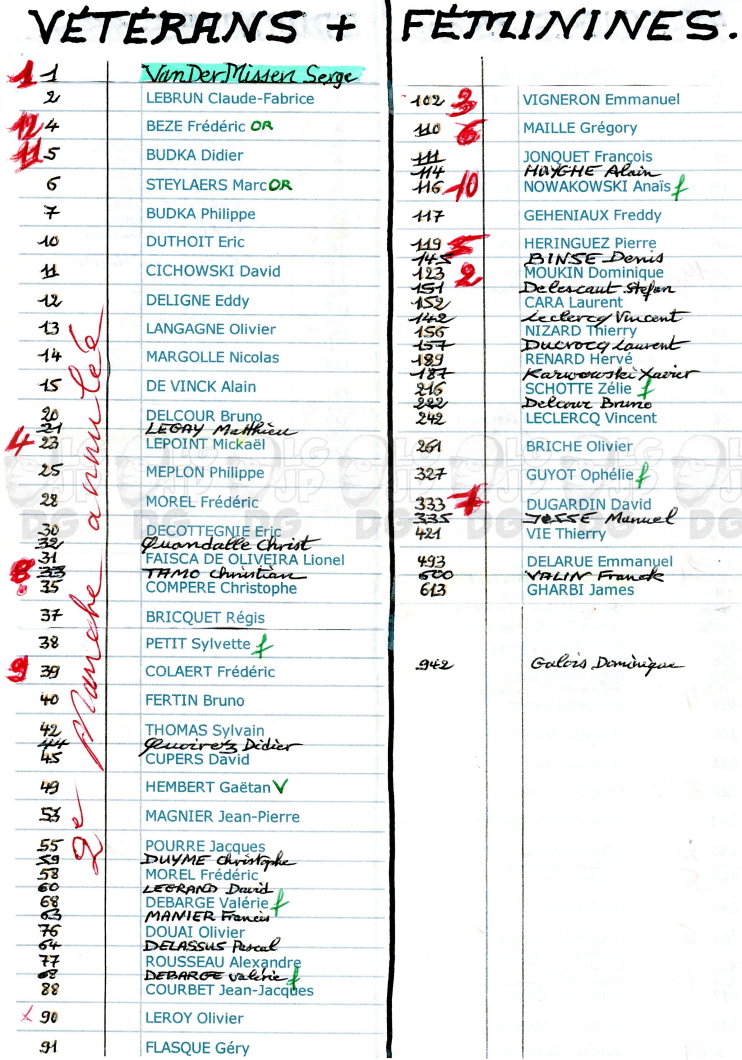 VÉTÉRANS + FÉMININES.
1 1 VanDerMissen Serge
2 LEBRUN Claude-Fabrice
12 4 BEZE Frédéric OR
11 5 BUDKA Didier
6 STEYLAERS Marc OR
7 BUDKA Philippe
10 DUTHOIT Eric
11 CICHOWSKI David
12 DELIGNE Eddy
13 LANGAGNE Olivier
14 MARGOLLE Nicolas
15 DE VINCK Alain
20 DELCOUR Bruno
21 LEGAY Matthieu
4 23 LEPOINT Mickaël
25 MEPLON Philippe
28 MOREL Frédéric
30 DECOTTEGNIE Eric
32 Quandalle Christ
31 FAISCA DE OLIVEIRA Lionel
8 33 TAMO Christian
35 COMPERE Christophe
37 BRICQUET Régis
38 PETIT Sylvette f
9 39 COLAERT Frédéric
40 FERTIN Bruno
42 THOMAS Sylvain
44 Quoirez Didier
45 CUPERS David
49 HEMBERT Gaëtan V
53 MAGNIER Jean-Pierre
55 POURRE Jacques
59 DUYME Christophe
58 MOREL Frédéric
60 LEGRAND David
68 DEBARGE Valérie f
63 MANIER Francis
76 DOUAI Olivier
64 DELASSUS Pascal
77 ROUSSEAU Alexandre
68 DEBARGE Valérie f
88 COURBET Jean-Jacques
x 90 LEROY Olivier
91 FLASQUE Géry
2e Manche annulée
102 3 VIGNERON Emmanuel
110 6 MAILLE Grégory
111 JONQUET François
114 HUYGHE Alain
116 10 NOWAKOWSKI Anaïs f
117 GEHENIAUX Freddy
119 5 HERINGUEZ Pierre
145 BINSE Denis
123 2 MOUKIN Dominique
151 Delescaut Stefan
152 CARA Laurent
142 Leclercq Vincent
156 NIZARD Thierry
157 Ducrocq Laurent
189 RENARD Hervé
187 Karwowski Xavier
216 SCHOTTE Zélie f
222 Delcour Bruno
242 LECLERCQ Vincent
261 BRICHE Olivier
327 GUYOT Ophélie f
333 7 DUGARDIN David
335 JOSSE Manuel
421 VIE Thierry
493 DELARUE Emmanuel
600 VALIN Franck
613 GHARBI James
942 Galois Dominique